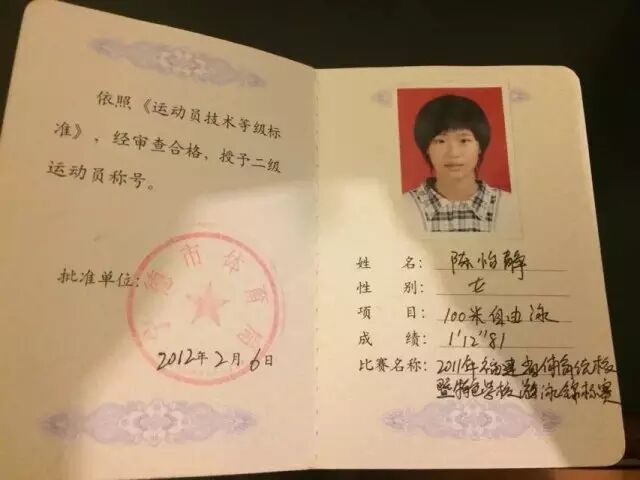 依照《运动员技术等级标
准》，经审查合格，授予二级
运动员称号。
批准单位：
宁德市体育局
2012年2月6日
姓名：陈怡静
性别：女
项目：100米自由泳
成绩：1'12"81
比赛名称：2011年福建省体育传统校
暨特色学校游泳锦标赛